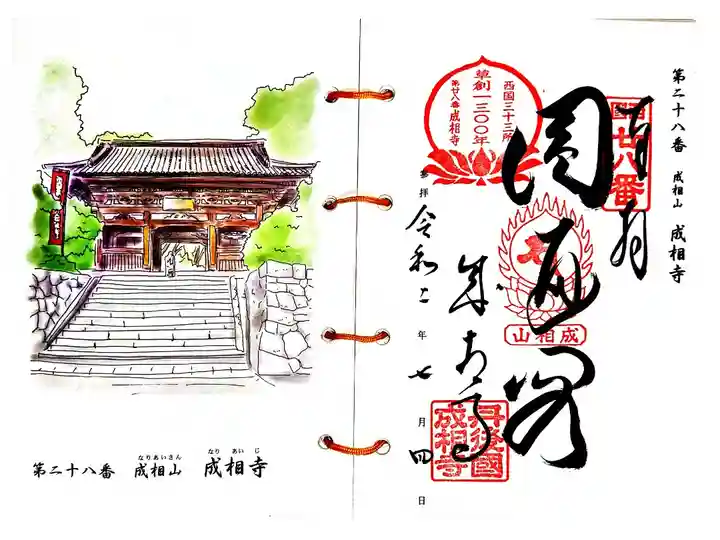 第二十八番 成相山 成相寺
西国
廿八番
奉拝
圓通閣
成相寺
西国三十三所
草創一三〇〇年
第廿八番成相寺
成相山
丹後國
成相寺
参拝 令和二年七月四日
なりあいさん なりあいじ
第二十八番 成相山 成相寺